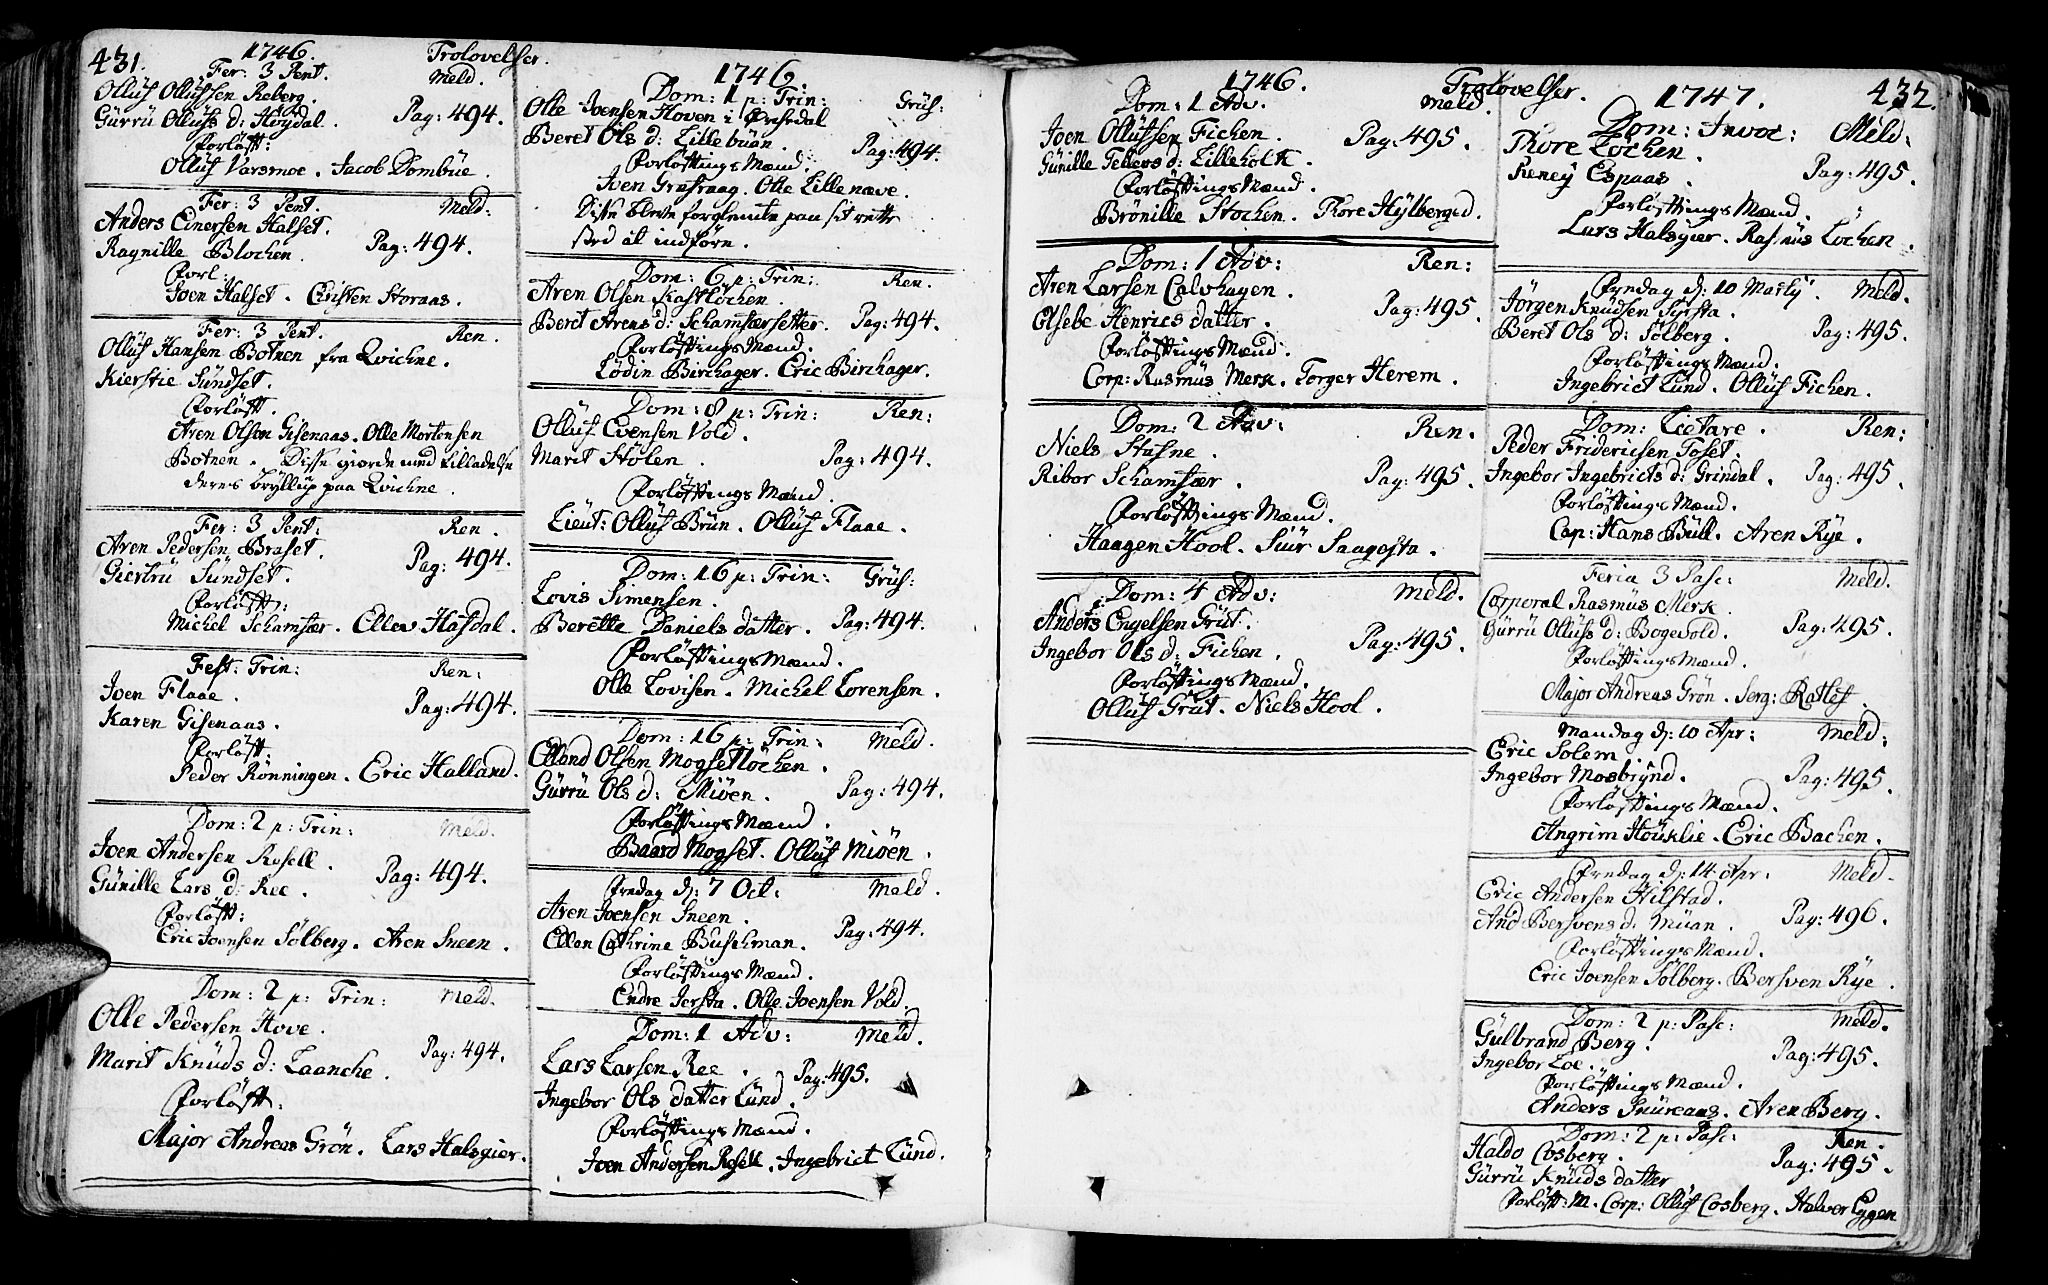 431.
1746. Trolovelser.
Fer: 3 Pent. Meld.
Olluf Ollufsen Reberg.
Gürrü Ollufs d: Høydal. Pag: 494.
Forløft:
Olluf Varsmoe. Jacob Dombüe.
Fer: 3 Pent. Meld:
Anders Einersen Halset.
Ragnille Blochen. Pag: 494.
Forl:
Joen Halset. Christen Storaas.
Fer: 3 Pent. Ren.
Olluf Hansen Botnen fra Qvichne.
Kierstie Sündset.
Forløft.
Aren Olson Gisenaas. Olle Mortensen
Botnen. Disse giorde med tilladelse
deres bryllup paa Qvichne.
Fer: 3 Pent: Ren.
Aren Pedersen Braset.
Giertrü Sündset. Pag: 494.
Forløft:
Michel Schamfær. Ellev Hafdal.
Fest: Trin: Ren:
Joen Flaae.
Karen Gisenaas. Pag: 494.
Forløft.
Peder Rönningen. Eric Halland.
Dom: 2 p: Trin: Meld.
Joen Andersen Rosell.
Günille Lars d: Ree. Pag: 494.
Forløft:
Eric Joensen Sölberg. Aren Sneen.
Dom: 2 p: Trin: Meld.
Olle Pedersen Hove.
Marit Knüds d: Laanche. Pag: 494.
Forløft:
Major Andreas Grön. Lars Halsgier.
1746.
Dom: 1 p: Trin: Grüs:
Olle Joensen Hoven i Ørchedal
Beret Ols d: Lillebüan. Pag: 494.
Forløftings Mænd.
Joen Græsaag. Olle Lillenæve.
Disse bleve forglemte paa sit rette
sted at indføre.
Dom: 6 p: Trin: Ren.
Aren Olsen Kastlöchen.
Beret Arens d: Schamfærsetter. Pag: 494.
Forløftings Mænd.
Lödin Birchager. Eric Birchager.
Dom: 8 p: Trin: Ren:
Olluf Evensen Vold.
Marit Stölen. Pag: 494.
Forløftings Mænd.
Lieut: Olluf Brün. Olluf Flaae.
Dom: 16 p: Trin: Grüs:
Lovis Simensen.
Berette Daniels datter. Pag: 494.
Forløftings Mænd.
Olle Lovisen. Michel Lorensen.
Dom: 16 p: Trin: Meld.
Elland Olsen Mogsetlöchen.
Gürrü Ols d: Miöen. Pag: 494.
Forløftings Mænd.
Baard Mogset. Olluf Miöen.
Fredag d: 7 Oct: Meld.
Aren Joensen Sneen.
Ellen Cathrine Büschman. Pag: 494.
Forløftings Mænd.
Endre Jersta. Olle Joensen Vold.
Dom: 1 Adv: Meld.
Lars Larsen Ree.
Ingebor Ols datter Lünd. Pag: 495.
Forløftings Mænd.
Joen Andersen Rosell. Ingebrict Lünd.
1746. Trolovelser.
Dom: 1 Adv. Meld.
Joen Ollufsen Fichen.
Günille Tellevs d: Lilleholt. Pag: 495.
Forløftings Mænd.
Brönille Stochen. Thore Hylberged.
Dom: 1 Adv: Ren:
Aren Larsen Calvhagen.
Elsebe Henrics datter. Pag: 495.
Forløftings Mænd.
Corp: Rasmus Merk. Torger Herem.
Dom: 2 Adv: Ren.
Niels Stufne.
Ribor Schamfær. Pag: 495.
Forløftings Mænd.
Haagen Hool. Siür Saagosta.
Dom: 4 Adv: Meld.
Anders Engelsen Grüt.
Ingebor Ols d: Fichen. Pag: 495.
Forløftings Mænd.
Olluf Grüt. Niels Hool.
1747. 432.
Dom: Invoc: Meld:
Thore Lochen.
Reney Espaas. Pag: 495.
Forløftings Mænd.
Lars Halsgier. Rasmus Löchen.
Fredag d: 10 Martij. Meld.
Jörgen Knüdsen Syrsta.
Beret Ols d: Sölberg. Pag: 495.
Forløftings Mænd:
Ingebrict Lund. Olluf Fichen.
Dom: Lætare. Ren:
Peder Fridericsen Toset.
Ingebor Ingebricts d: Grindal. Pag: 495.
Forløftings Mænd.
Cap: Hans Büll. Aren Rye.
Feria 3 Pasc: Meld.
Corporal Rasmus Merk.
Gürrü Ollufs d: Bogevold. Pag: 495.
Forløftings Mænd.
Major Andreas Grön. Serg: Ratlef.
Mandag d: 10 Apr: Meld:
Eric Solem.
Ingebor Mosbrynd. Pag: 495.
Forløftings Mænd.
Angrim Houklie. Eric Bachen.
Fredag d: 14 Apr: Meld.
Eric Andersen Hilstad.
And Bersvens d: Müan. Pag: 496.
Forløftings Mænd.
Eric Joensen Sölberg. Bersven Rye.
Dom: 2 p: Pasc: Meld.
Gülbrand Berg.
Ingebor Loe. Pag: 495.
Forløftings Mænd.
Anders Snüreaas. Aren Berg.
Dom: 2 p: Pasc: Ren.
Haldo Cosberg.
Gürrü Knüds datter Pag: 495.
Forløft: M. Corp: Olluf Cosberg. Halvor Eggen